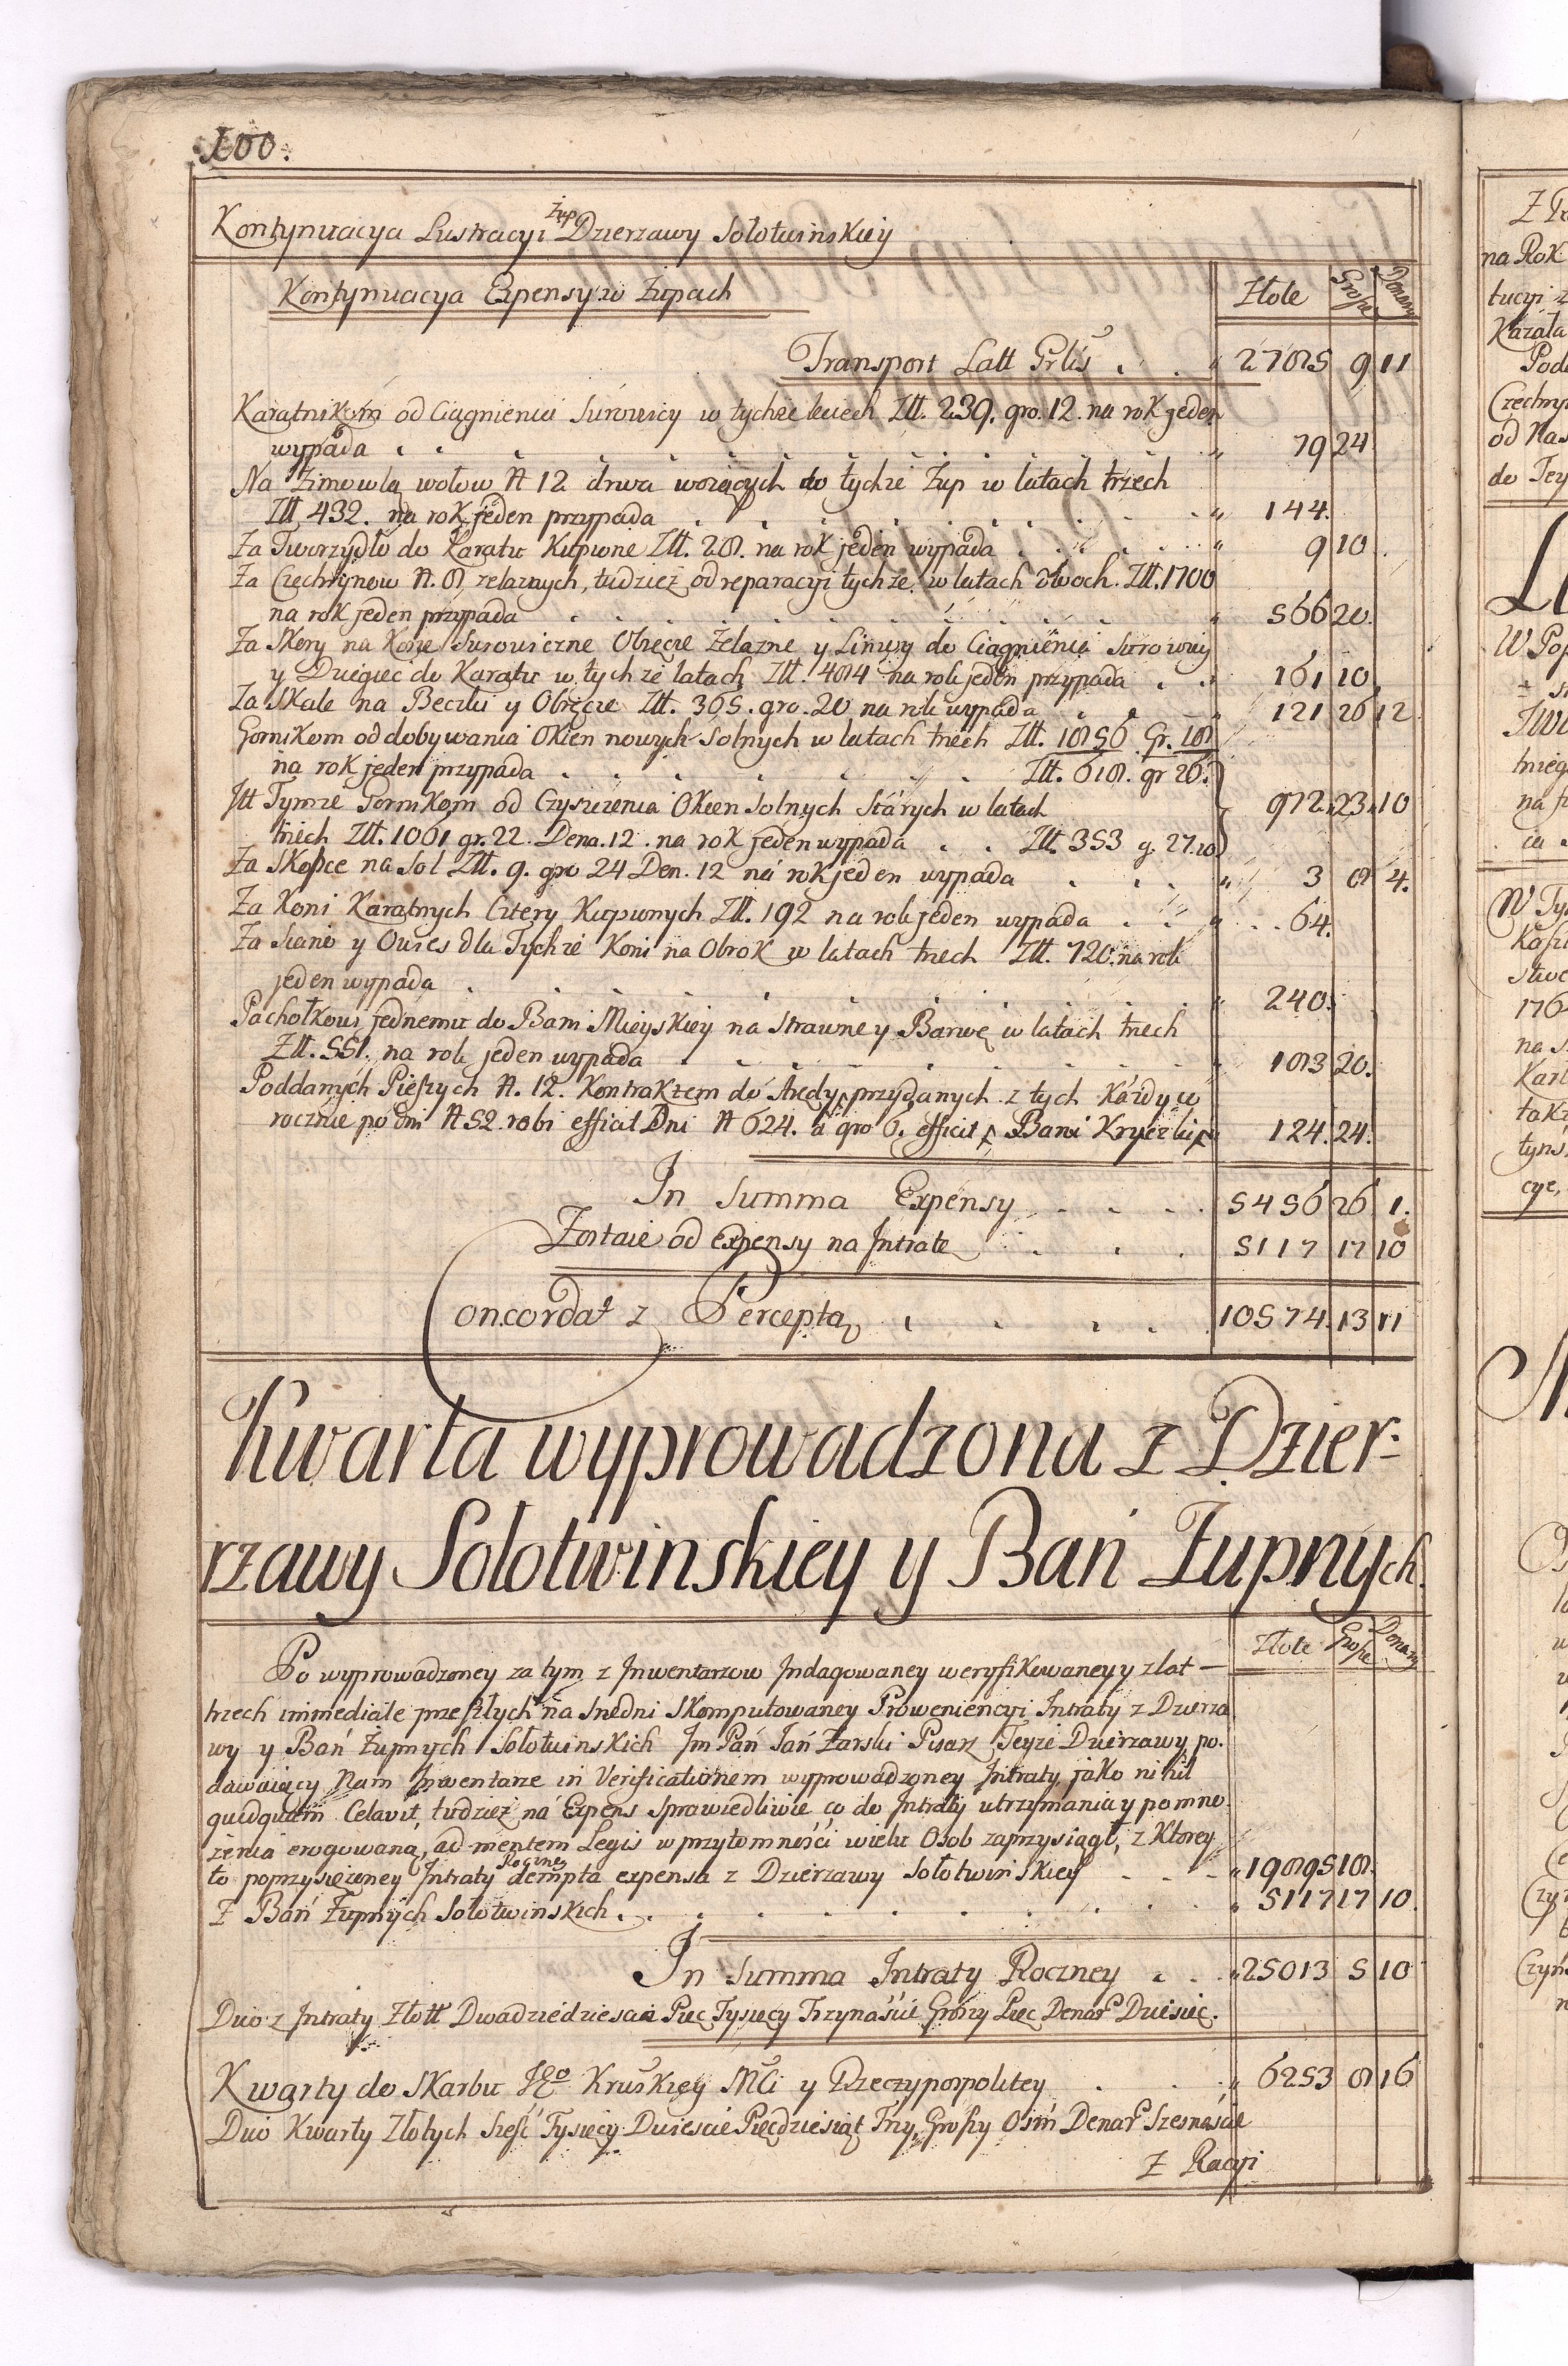 100.
Kontynuacya Lustracyi Żup Dzierzawy Sołotwinskiey
Kontynuacya Expensy w Żupach
Złote Grosze Denary
Transport Latt Prtis . . " 2785 9 11
Karatnikom od Ciągnienia Surowicy w tychże leciech Złł. 239. gro. 12. na rok jeden
wypada . . . " 79 24
Na Zimowlą wołow N 12 drwa wożących do tychże Żup w latach trzech
Złł 432. na rok jeden przypada . . . " 144.
Za Tworzydło do Karatu Kupione Złł. 28. na rok jeden wypada . . . " 9 10
Za Czechrynow N. 8 zelaznych, tudzież od reparacyi tychże w latach dwoch. Złł. 1700
na rok jeden przypada . . . " 566 20.
Za Skory na Kosze Surowiczne Obręcze Zelazne y Linwy do Ciągnienia Surowicy
y Dziegieć do Karatu w tychże latach Złł. 484 na rok jeden przypada . . " 161 10
Za Skale na Beczki y Obręcze Złł. 365. gro. 20 na rok wypada . . . " 121 26 12
Gornikom od dobywania Okien nowych Solnych w latach trzech Złł. 1856 Gr. 18
na rok jeden przypada . . . Złł. 618. gr 26.
Itt Tymże Gornikom od Czyszczenia Okien Solnych Starych w latach
972. 23. 10
trzech Złł. 1061 gr. 22. Dena. 12. na rok jeden wypada . . Złł. 353 g. 27. 10
Za Skopce na Sol Złł. 9. gro 24 Den. 12 na rok jeden wypada . . . " 3 8 4.
Za Koni Karatnych Cztery Kupionych Złł. 192 na rok jeden wypada . . " 64.
Za Siano y Owies dla Tychże Koni na Obrok w latach trzech Złł. 720. na rok
jeden wypada . . . " 240.
Pachołkowi jednemu do Bani Mieyskiey na Strawne y Barwę w latach trzech
Złł. 551. na rok jeden wypada . . . " 183 20.
Poddanych Pieszych N. 12. Kontraktem do Aredy przydanych z tych Każdy co
rocznie po dni N 52 robi efficit Dni N 624. a gro 6. efficit z Bani Kryczki " 124. 24.
In Summa Expensy . . . 5456 26 1.
Zostaie od Expensy na Intrate . . . 5117 17 10
Concordat z Perceptą . . . 10574. 13 11
Kwarta wyprowadzona z Dzier-
rzawy Sołotwinskiey y Bań Żupnych.
Złote Grosze Denary
Po wyprowadzoney za tym z Inwentarzow Indagowaney weryfikowaney y z lat
trzech immediate przeszłych na Sredni Skomputowaney Proweniencyi Intraty z Dzierza
wy y Bań Żupnych Sołotwinskich Jm Pan Jan Żarski Pisarz Teyże Dzierzawy, po.
dawaiący Nam Inwentarze in Verificationem wyprowadzoney Intraty, jako nihil
quidquam Celavit, tudzież na Expens Sprawiedliwie co do Intraty utrzymania y pomno.
żenia erogowaną, ad mentem Legis w przytomności wielu Osob zaprzysiągł, z Ktorey
to poprzysiężoney Intraty Roczney dempta expensa z Dzierzawy Sołotwinskiey . . . " 19895 18.
Z Bań Żupnych Sołotwinskich . . . " 5117 17 10.
In Summa Intraty Roczney . . . " 25013 5 10
Dico z Intraty Złott Dwadziedziescia Pięc Tysięcy Trzynaście Groszy Pięc Denar Dziesięc.
Kwarty do Skarbu Jgo Kruskiey Mci y Rzeczypospolitey . . . " 6253 8 16
Dico Kwarty Złotych Sześć Tysięcy Dwieście Pięcdziesiąt Trzy, Groszy Ośm Denar Szesnaście
Z Racyi